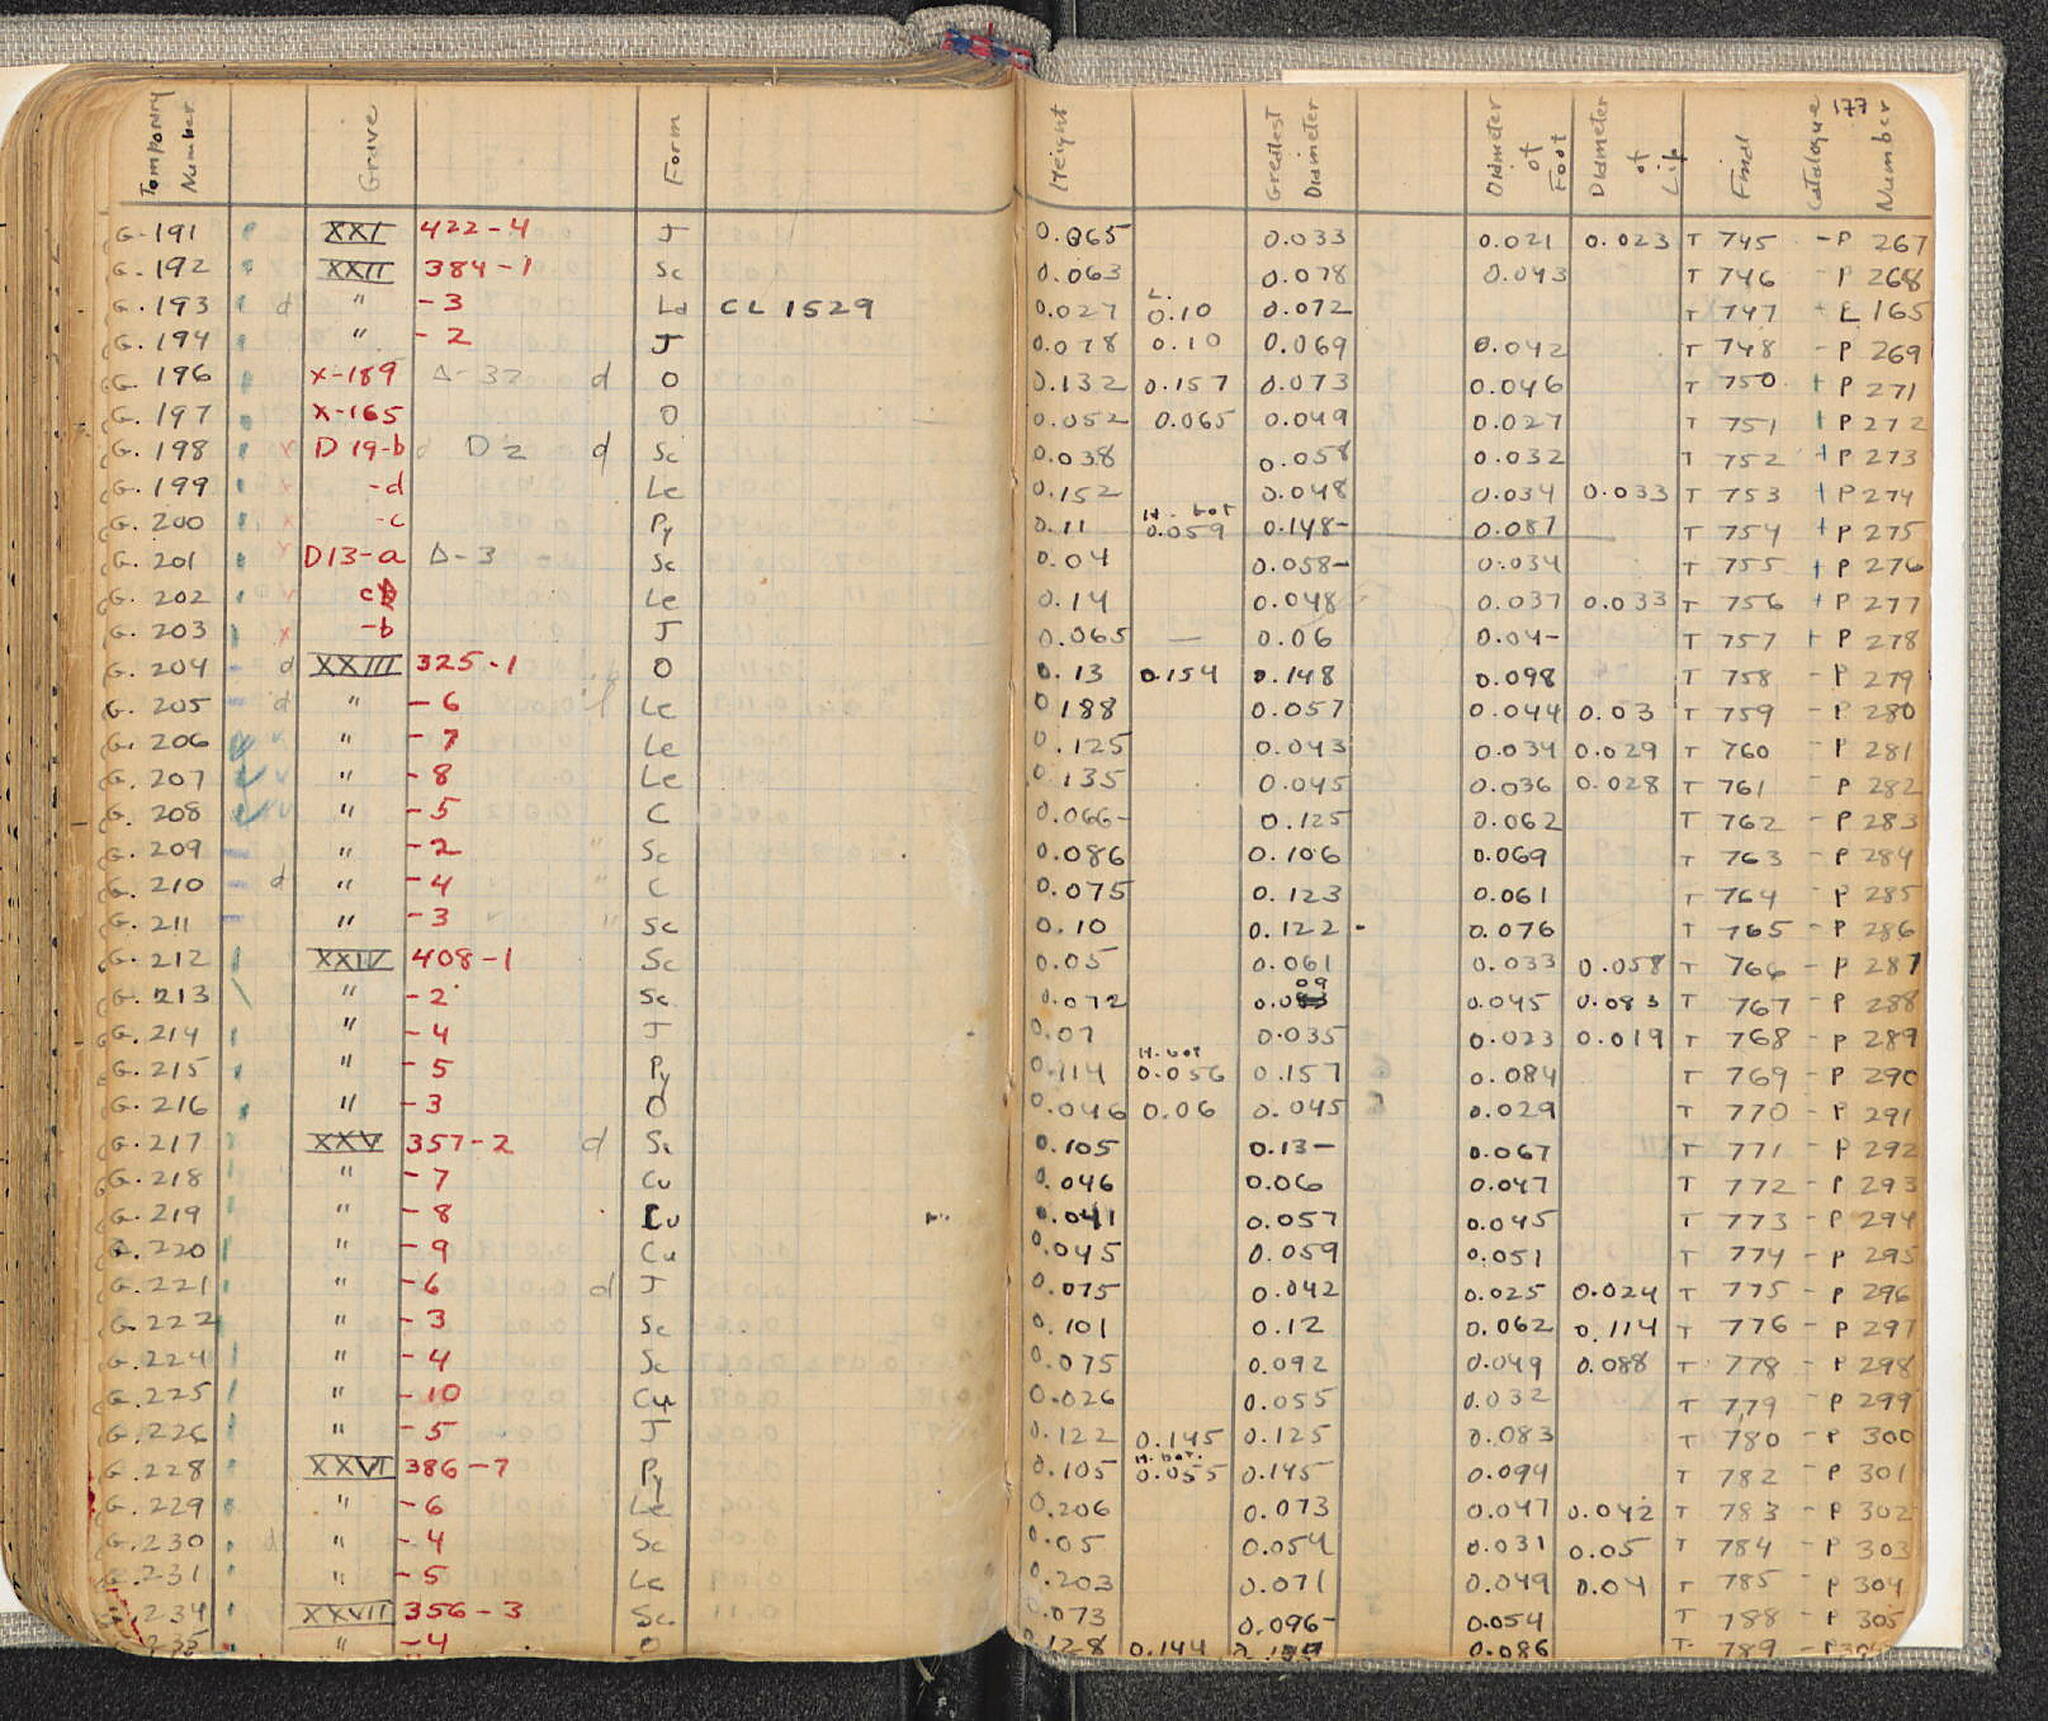 Temporary Number Grave Form Height Greatest Diameter Diameter of Foot Diameter of Lip Final Catalogue Number 177
G-191 XXI 422-4 J 0.065 0.033 0.021 0.023 T 745 - P 267
G. 192 XXII 384-1 Sc 0.063 0.078 0.043 T 746 - P 268
G. 193 d " -3 La CL 1529 0.027 L. 0.10 0.072 T 747 + L 165
G. 194 " -2 J 0.078 0.10 0.069 0.042 T 748 - P 269
G. 196 X-189 Δ-32 d O 0.132 0.157 0.073 0.046 T 750 + P 271
G. 197 X-165 O 0.052 0.065 0.049 0.027 T 751 + P 272
G. 198 D 19-b D 2 d Sc 0.038 0.058 0.032 T 752 + P 273
G. 199 x -d Le 0.152 0.048 0.034 0.033 T 753 + P 274
G. 200 x -c Py 0.11 H. bot 0.059 0.148- 0.087 T 754 + P 275
G. 201 D13-a Δ-3 - Sc 0.04 0.058- 0.034 T 755 + P 276
G. 202 c Le 0.14 0.048 0.037 0.033 T 756 + P 277
G. 203 x -b J 0.065 — 0.06 0.04- T 757 + P 278
G. 204 - d XXIII 325-1 O 0.13 0.154 0.148 0.098 T 758 - P 279
G. 205 - d " -6 Le 0 188 0.057 0.044 0.03 T 759 - P 280
G. 206 " -7 Le 0.125 0.043 0.034 0.029 T 760 - P 281
G. 207 " -8 Le 0.135 0.045 0.036 0.028 T 761 - P 282
G. 208 " -5 C 0.066- 0.125 0.062 T 762 - P 283
G. 209 - " -2 " Sc 0.086 0.106 0.069 T 763 - P 284
G. 210 - d " -4 " C 0.075 0.123 0.061 T 764 - P 285
G. 211 - " -3 " Sc 0.10 0.122 - 0.076 T 765 - P 286
G. 212 XXIV 408-1 Sc 0.05 0.061 0.033 0.058 T 766 - P 287
G. 213 " -2 Sc 0.072 0.009 0.045 0.083 T 767 - P 288
G. 214 " -4 J 0.07 0.035 0.023 0.019 T 768 - P 289
G. 215 " -5 Py 0.114 H. bot 0.056 0.157 0.084 T 769 - P 290
G. 216 " -3 O 0.046 0.06 0.045 0.029 T 770 - P 291
G. 217 XXV 357-2 d Sc 0.105 0.13- 0.067 T 771 - P 292
G. 218 " -7 Cu 0.046 0.06 0.047 T 772 - P 293
G. 219 " -8 Cu 0.041 0.057 0.045 T 773 - P 294
G. 220 " -9 Cu 0.045 0.059 0.051 T 774 - P 295
G. 221 " -6 d J 0.075 0.042 0.025 0.024 T 775 - P 296
G. 222 " -3 Sc 0.101 0.12 0.062 0.114 T 776 - P 297
G. 224 " -4 Sc 0.075 0.092 0.049 0.088 T 778 - P 298
G. 225 " -10 Cu 0.026 0.055 0.032 T 779 - P 299
G. 226 " -5 J 0.122 0.145 0.125 0.083 T 780 - P 300
G. 228 XXVI 386-7 Py 0.105 H. bot. 0.055 0.145 0.094 T 782 - P 301
G. 229 " -6 Le 0.206 0.073 0.047 0.042 T 783 - P 302
G. 230 d " -4 Sc 0.05 0.054 0.031 0.05 T 784 - P 303
G. 231 " -5 Le 0.203 0.071 0.049 0.04 T 785 - P 304
234 XXVII 356-3 Sc. 0.073 0.096- 0.054 T 788 - P 305
235 " -4 O 0.128 0.144 0.086 T. 789 - P